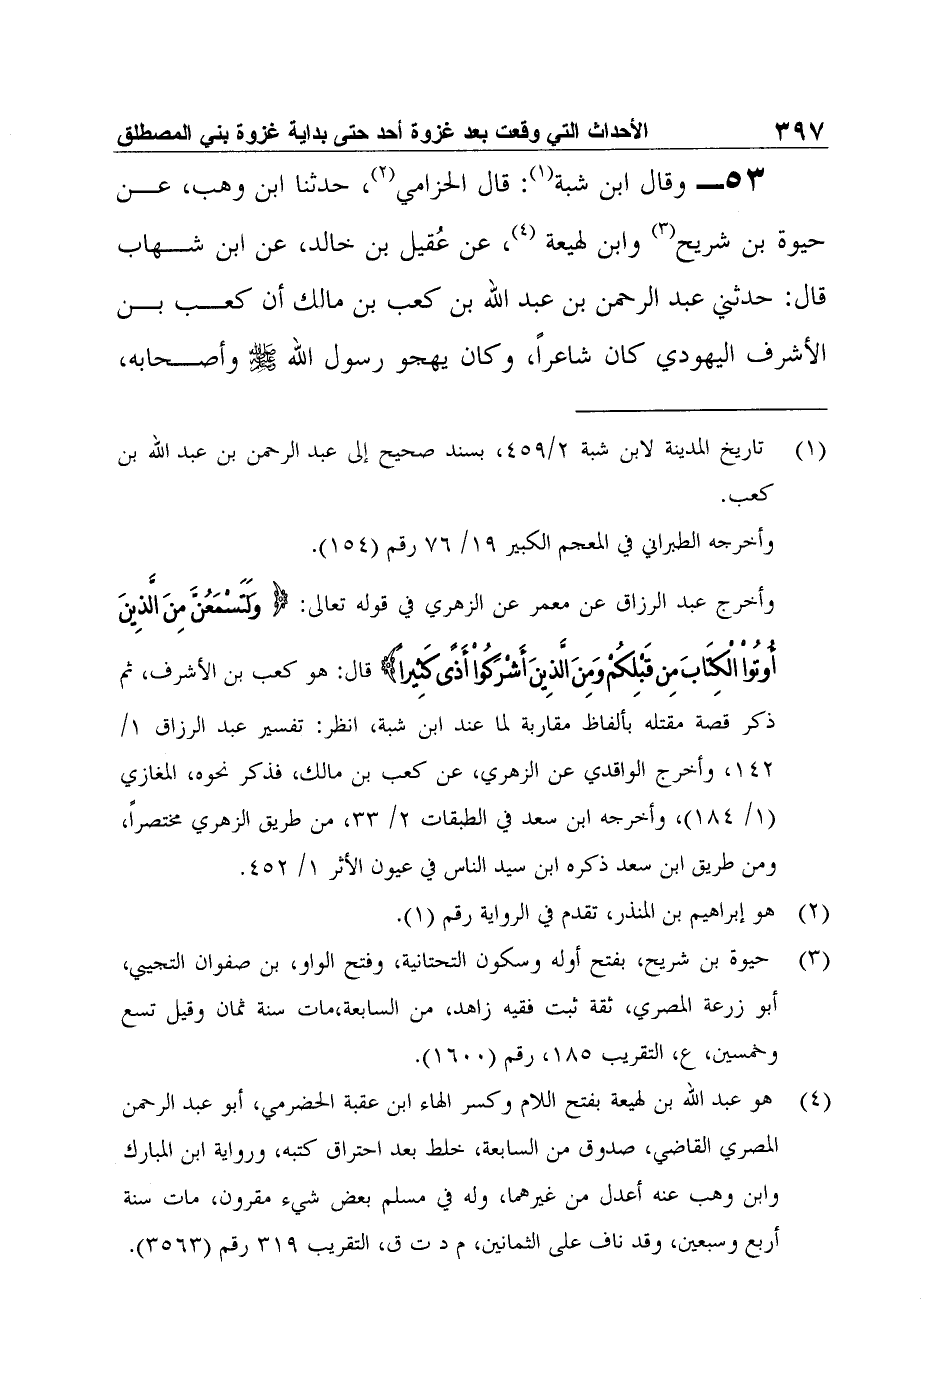 ٣٩٧ الأحداث التي وقعت بعد غزوة أحد حتى بداية غزوة بني المصطلق
٥٣ــ وقال ابن شبة(١): قال الحزامي(٢)، حدثنا ابن وهب، عــن
حيوة بن شريح(٣) وابن لهيعة (٤)، عن عُقيل بن خالد، عن ابن شـــهاب
قال: حدثني عبد الرحمن بن عبد الله بن كعب بن مالك أن كعـــب بـــن
الأشرف اليهودي كان شاعراً، وكان يهجو رسول الله ﷺ وأصـــحابه،
(١) تاريخ المدينة لابن شبة ٤٥٩/٢، بسند صحيح إلى عبد الرحمن بن عبد الله بن
كعب.
وأخرجه الطبراني في المعجم الكبير ١٩/ ٧٦ رقم (١٥٤).
وأخرج عبد الرزاق عن معمر عن الزهري في قوله تعالى: ﴿ وَلَتَسْمَعُنَّ مِنَ الَّذِينَ
أُوتُوا الْكِتَابَ مِن قَبْلِكُمْ وَمِنَ الَّذِينَ أَشْرَكُوا أَذًى كَثِيراً﴾ قال: هو كعب بن الأشرف، ثم
ذكر قصة مقتله بألفاظ مقاربة لما عند ابن شبة، انظر: تفسير عبد الرزاق ١/
١٤٢، وأخرج الواقدي عن الزهري، عن كعب بن مالك، فذكر نحوه، المغازي
(١/ ١٨٤)، وأخرجه ابن سعد في الطبقات ٢/ ٣٣، من طريق الزهري مختصراً،
ومن طريق ابن سعد ذكره ابن سيد الناس في عيون الأثر ١/ ٤٥٢.
(٢) هو إبراهيم بن المنذر، تقدم في الرواية رقم (١).
(٣) حيوة بن شريح، بفتح أوله وسكون التحتانية، وفتح الواو، بن صفوان التجيبي،
أبو زرعة المصري، ثقة ثبت فقيه زاهد، من السابعة،مات سنة ثمان وقيل تسع
وخمسين، ع، التقريب ١٨٥، رقم (١٦٠٠).
(٤) هو عبد الله بن لهيعة بفتح اللام وكسر الهاء ابن عقبة الحضرمي، أبو عبد الرحمن
المصري القاضي، صدوق من السابعة، خلط بعد احتراق كتبه، ورواية ابن المبارك
وابن وهب عنه أعدل من غيرهما، وله في مسلم بعض شيء مقرون، مات سنة
أربع وسبعين، وقد ناف على الثمانين، م د ت ق، التقريب ٣١٩ رقم (٣٥٦٣).